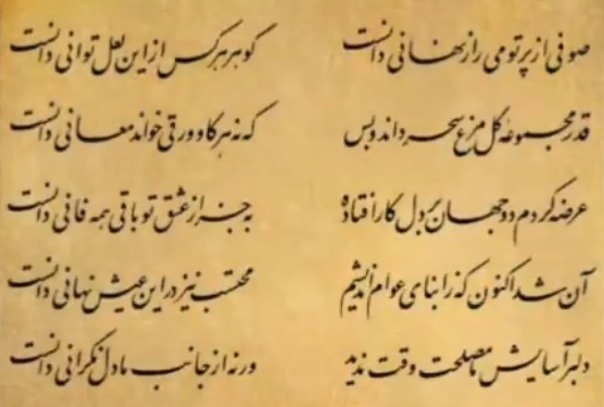 صوفی از پرتو می راز نهانی دانست گوهر هر کس از این لعل توانی دانست
قدر مجموعه گل مرغ سحر داند و بس که نه هر کاو ورقی خواند معانی دانست
عرضه کردم دو جهان بر دل کار افتاده به جز از عشق تو باقی همه فانی دانست
آن شد اکنون که ز ابنای عوام اندیشم محتسب نیز در این عیش نهانی دانست
دلبر آسایش ما مصلحت وقت ندید ور نه از جانب ما دل نگرانی دانست